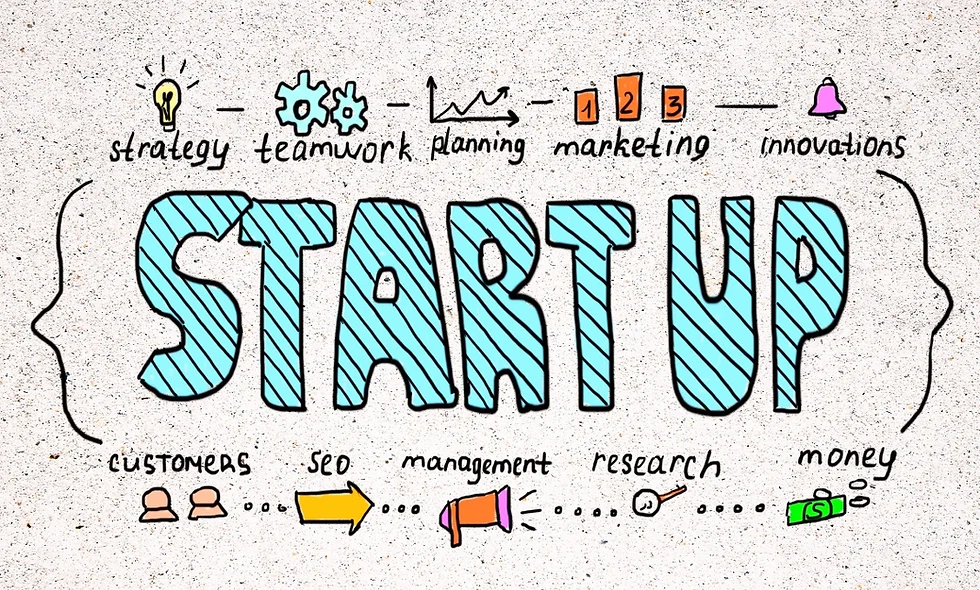 strategy teamwork planning marketing innovations
1 2 3
START UP
customers seo management research money
$